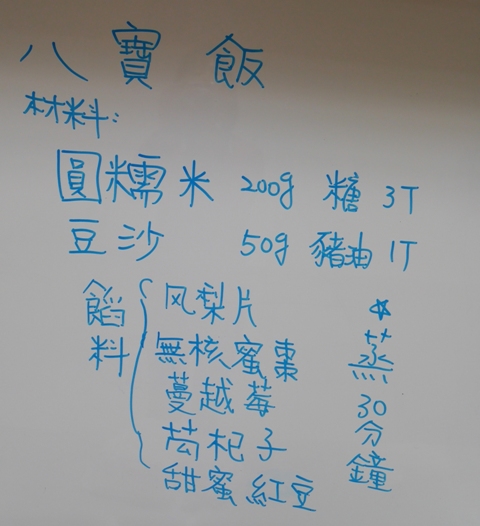 八寶飯
材料:
圓糯米 200g 糖 3T
豆沙 50g 豬油 1T
餡料
风梨片
無核蜜棗
蔓越莓
芶杞子
甜蜜紅豆
☆蒸30分鐘